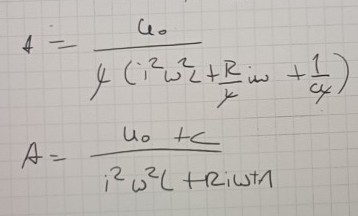 A = u₀ / (L̸ (i²ω²L + R/L̸ iω + 1/(CL̸)))
A = u₀ + C / (i²ω²L + Riω + 1)